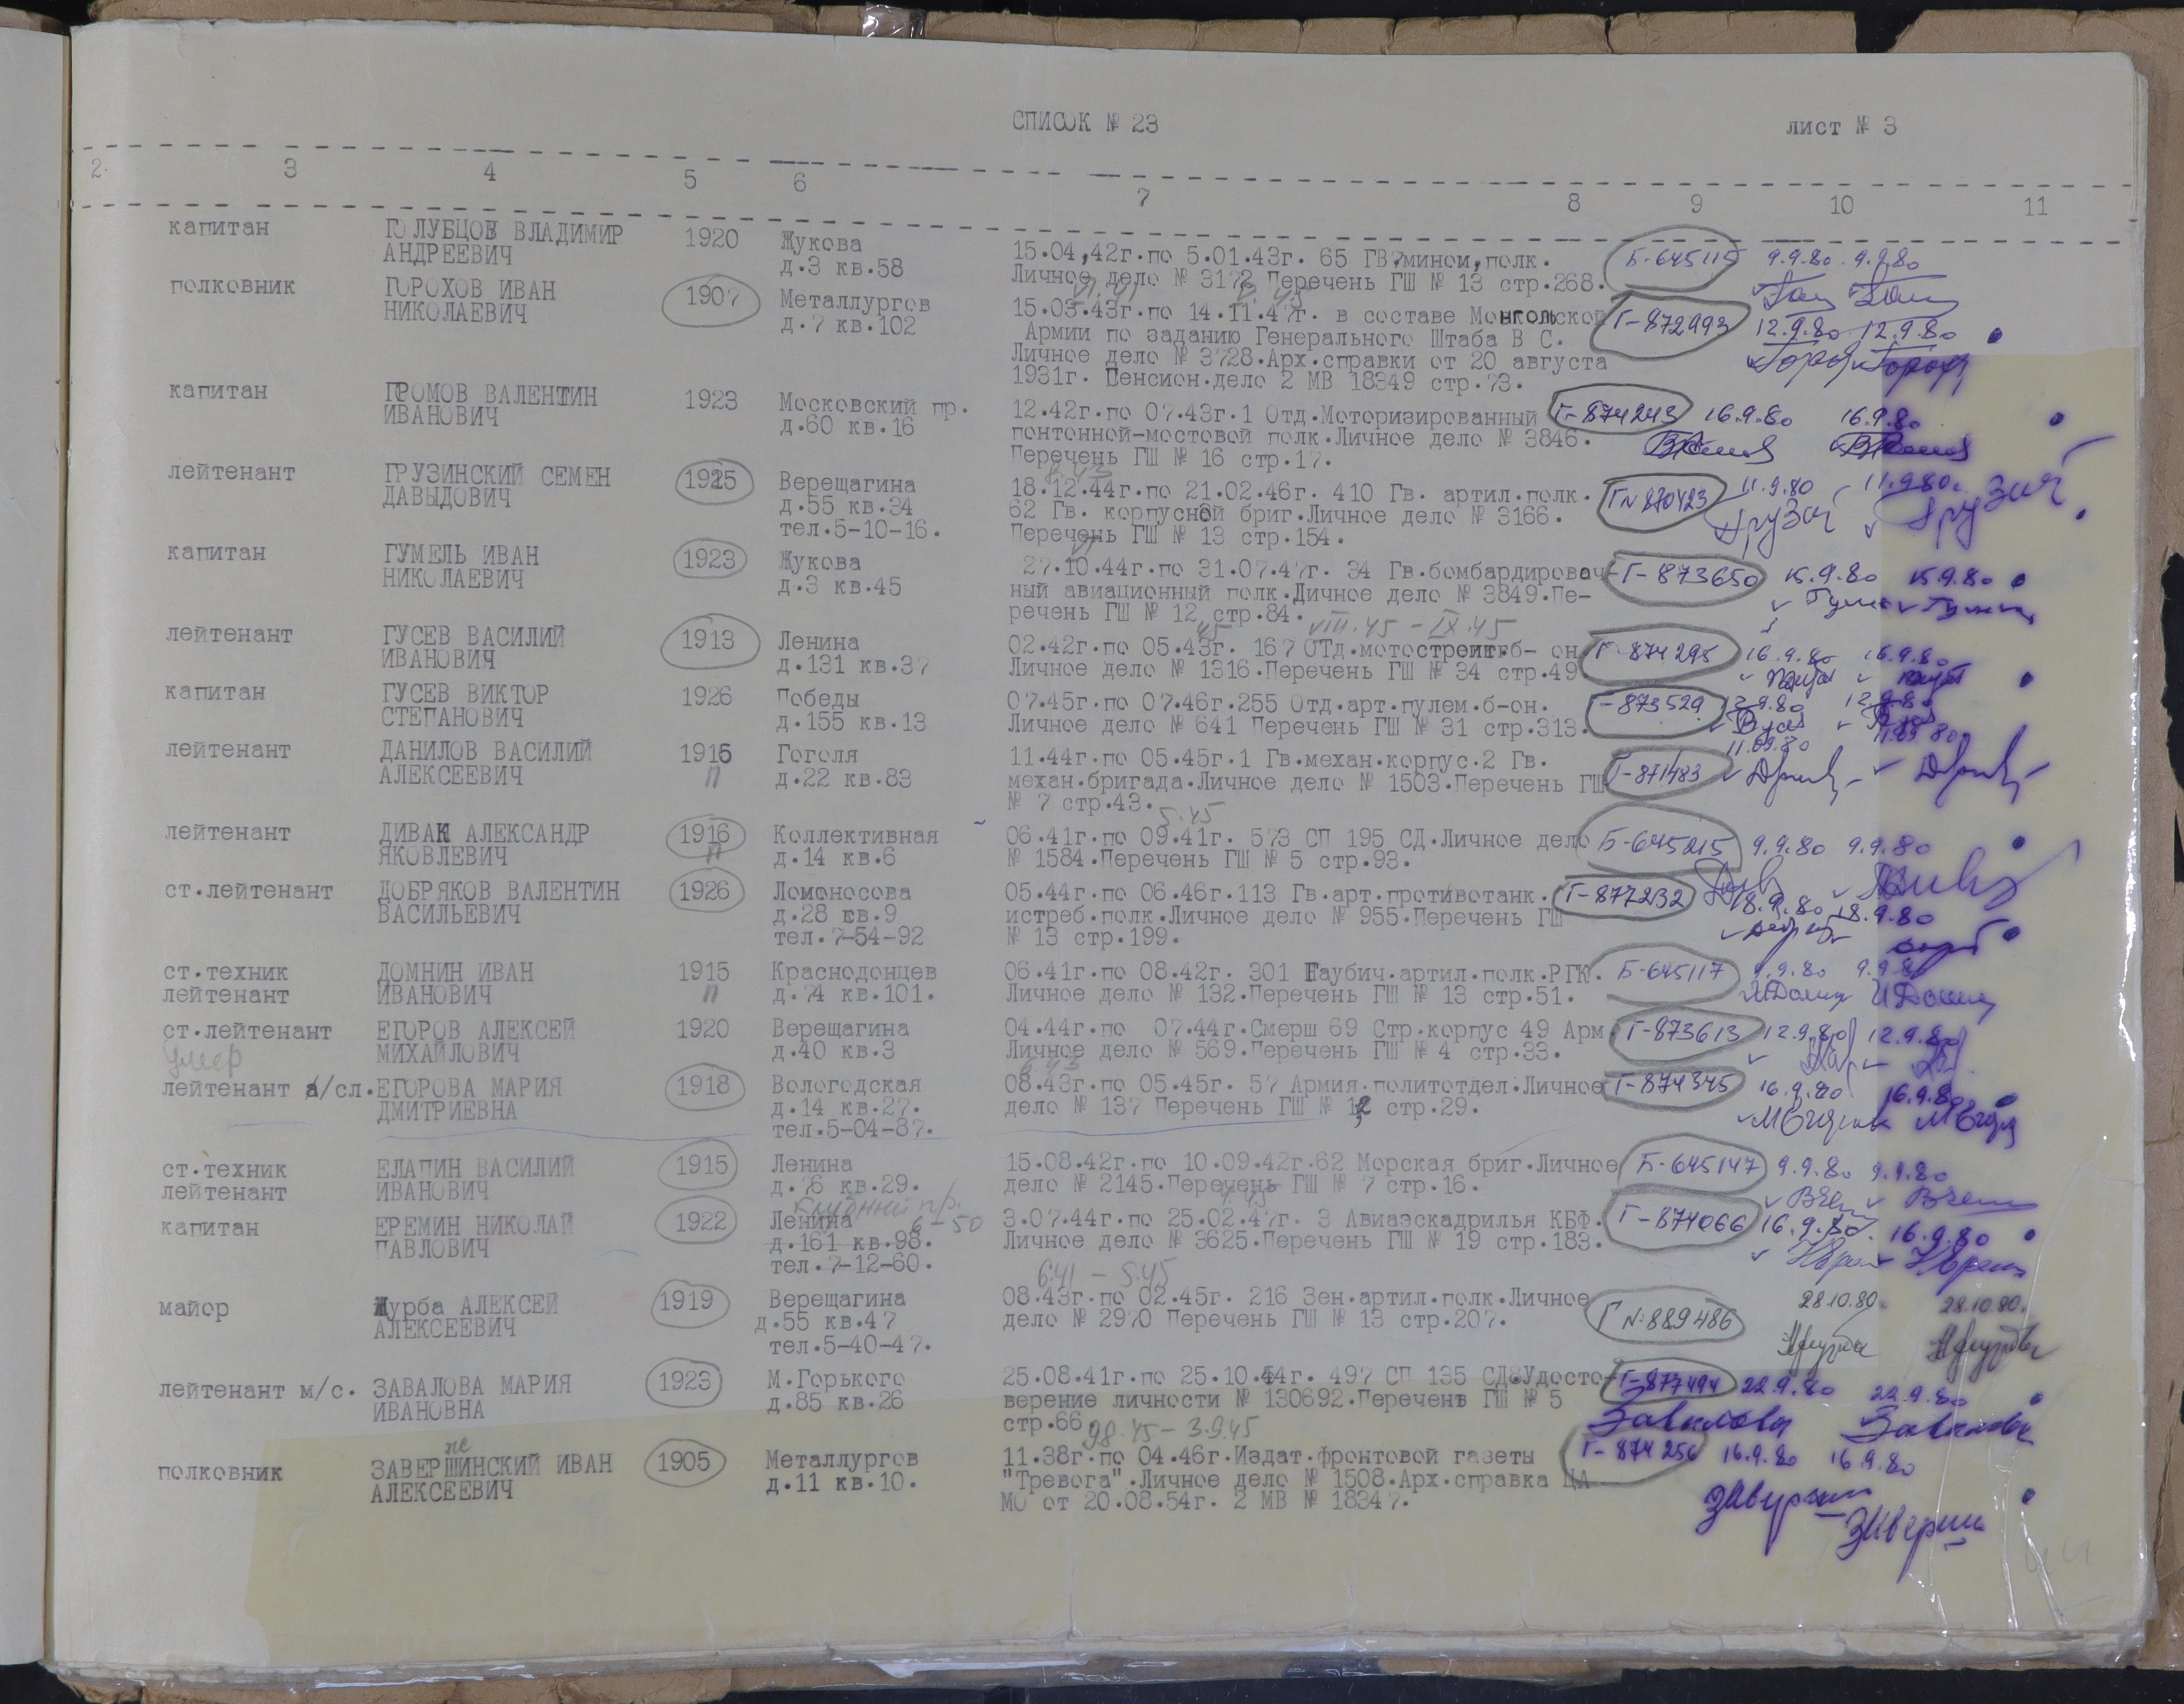 СПИСОК № 23
лист № 3
2. 3 4 5 6 7 8 9 10 11
капитан ГОЛУБЦОВ ВЛАДИМИР 1920 Жукова 15.04,42г.по 5.01.43г. 65 ГВ.мином,полк. Б-645115 9.9.80. 9.9.80
АНДРЕЕВИЧ д.3 кв.58 Личное дело № 3172 Перечень ГШ № 13 стр.268.
полковник ГОРОХОВ ИВАН 1907 Металлургов 15.03.43г.по 14.11.47г. в составе Монгольской Г-872993 12.9.80 12.9.80
НИКОЛАЕВИЧ д.7 кв.102 Армии по заданию Генерального Штаба В С.
Личное дело № 3728.Арх.справки от 20 августа
1931г. Пенсион.дело 2 МВ 18349 стр.73.
капитан ГРОМОВ ВАЛЕНТИН 1923 Московский пр. 12.42г.по 07.43г.1 Отд.Моторизированный Г-874243 16.9.80 16.9.80
ИВАНОВИЧ д.60 кв.16 понтонной-мостовой полк.Личное дело № 3846.
Перечень ГШ № 16 стр.17.
лейтенант ГРУЗИНСКИЙ СЕМЕН 1925 Верещагина 18.12.44г.по 21.02.46г. 410 Гв. артил.полк. Г№870423 11.9.80 11.9.80г
ДАВЫДОВИЧ д.55 кв.34 62 Гв. корпусной бриг.Личное дело № 3166. Грузи Грузи
тел.5-10-16. Перечень ГШ № 13 стр.154.
капитан ГУМЕЛЬ ИВАН 1923 Жукова 27.10.44г.по 31.07.47г. 34 Гв.бомбардировоч- Г-873650 15.9.80 15.9.80
НИКОЛАЕВИЧ д.3 кв.45 ный авиационный полк.Личное дело № 3849.Пе-
речень ГШ № 12 стр.84. VIII.45 - IX.45
лейтенант ГУСЕВ ВАСИЛИЙ 1913 Ленина 02.42г.по 05.43г. 167 ОТд.мотострелк.б- он Г-874295 16.9.80 16.9.80
ИВАНОВИЧ д.131 кв.37 Личное дело № 1316.Перечень ГШ № 34 стр.49
капитан ГУСЕВ ВИКТОР 1926 Победы 07.45г.по 07.46г.255 Отд.арт.пулем.б-он. Г-873529 12.9.80 12.9.80
СТЕПАНОВИЧ д.155 кв.13 Личное дело № 641 Перечень ГШ № 31 стр.313.
лейтенант ДАНИЛОВ ВАСИЛИЙ 1915 Гоголя 11.44г.по 05.45г.1 Гв.механ.корпус.2 Гв. Г-871483 11.09.80 11.09.80
АЛЕКСЕЕВИЧ п д.22 кв.83 механ.бригада.Личное дело № 1503.Перечень ГШ
№ 7 стр.43. 5.45
лейтенант ДИВАК АЛЕКСАНДР 1916 Коллективная 06.41г.по 09.41г. 573 СП 195 СД.Личное дело Б-645215 9.9.80 9.9.80
ЯКОВЛЕВИЧ п д.14 кв.6 № 1584.Перечень ГШ № 5 стр.93.
ст.лейтенант ДОБРЯКОВ ВАЛЕНТИН 1926 Ломоносова 05.44г.по 06.46г.113 Гв.арт.противотанк. Г-877232 18.9.80 18.9.80
ВАСИЛЬЕВИЧ д.28 кв.9 истреб.полк.Личное дело № 955.Перечень ГШ
тел.7-54-92 № 13 стр.199.
ст.техник ДОМНИН ИВАН 1915 Краснодонцев 06.41г.по 08.42г. 301 Гаубич.артил.полк.РГК. Б-645117 9.9.80 9.9.80
лейтенант ИВАНОВИЧ п д.74 кв.101. Личное дело № 132.Перечень ГШ № 13 стр.51.
ст.лейтенант ЕГОРОВ АЛЕКСЕЙ 1920 Верещагина 04.44г.по 07.44г.Смерш 69 Стр.корпус 49 Арм. Г-873613 12.9.80 12.9.80
умер МИХАЙЛОВИЧ д.40 кв.3 Личное дело № 569.Перечень ГШ № 4 стр.33.
лейтенант а/сл. ЕГОРОВА МАРИЯ 1918 Вологодская 08.43г.по 05.45г. 57 Армия.политотдел.Личное Г-874345 16.9.80 16.9.80
ДМИТРИЕВНА д.14 кв.27. дело № 137 Перечень ГШ № 12 стр.29.
тел.5-04-87.
ст.техник ЕЛАПИН ВАСИЛИЙ 1915 Ленина 15.08.42г.по 10.09.42г.62 Морская бриг.Личное Б-645147 9.9.80 9.9.80
лейтенант ИВАНОВИЧ д.76 кв.29. дело № 2145.Перечень ГШ № 7 стр.16.
Клубный пр. 6-50
капитан ЕРЕМИН НИКОЛАЙ 1922 Ленина 3.07.44г.по 25.02.47г. 3 Авиаэскадрилья КБФ. Г-874066 16.9.80. 16.9.80
ПАВЛОВИЧ д.161 кв.98. Личное дело № 3625.Перечень ГШ № 19 стр.183.
тел.7-12-60.
6.41 - 5.45
майор Журба АЛЕКСЕЙ 1919 Верещагина 08.43г.по 02.45г. 216 Зен.артил.полк.Личное Г №889486 28.10.80. 28.10.80.
АЛЕКСЕЕВИЧ д.55 кв.47 дело № 2970 Перечень ГШ № 13 стр.207.
тел.5-40-47.
лейтенант м/с. ЗАВАЛОВА МАРИЯ 1923 М.Горького 25.08.41г.по 25.10.44г. 497 СП 135 СД.Удосто- Г-877494 22.9.80 22.9.80
ИВАНОВНА д.85 кв.26 верение личности № 130692.Перечень ГШ № 5 Завалова Завалова
стр.66 9.8.45 - 3.9.45
полковник ЗАВЕРШИНСКИЙ ИВАН 1905 Металлургов 11.38г.по 04.46г.Издат.фронтовой газеты Г-874256 16.9.80 16.9.80
АЛЕКСЕЕВИЧ д.11 кв.10. "Тревога".Личное дело № 1508.Арх.справка ЦА
МО от 20.08.54г. 2 МВ № 18347.